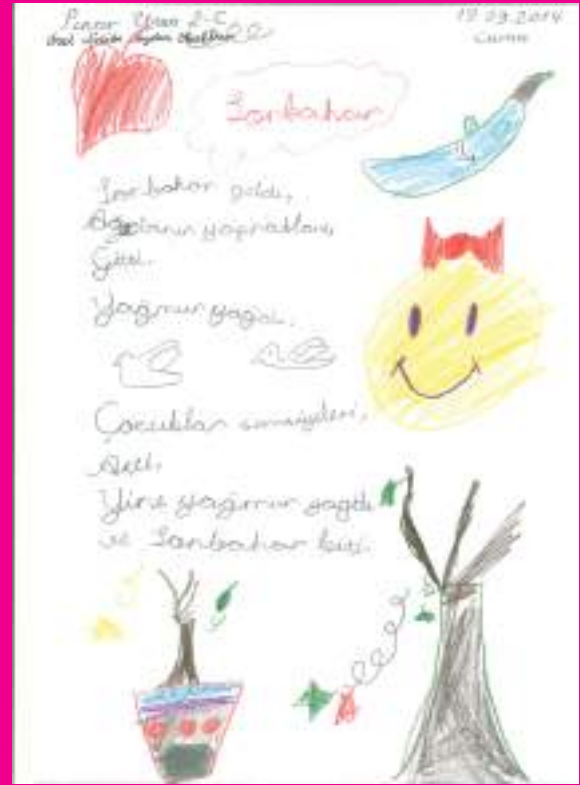 Pınar 2-C
19.09.2014
Cuma
Sonbahar
Sonbahar geldi,
Ağaçların yaprakları,
Gitti.
Yağmur yağdı.
Çocuklar şemsiyeleri,
Açtı,
Yine yağmur yağdı
ve Sonbahar bitti.